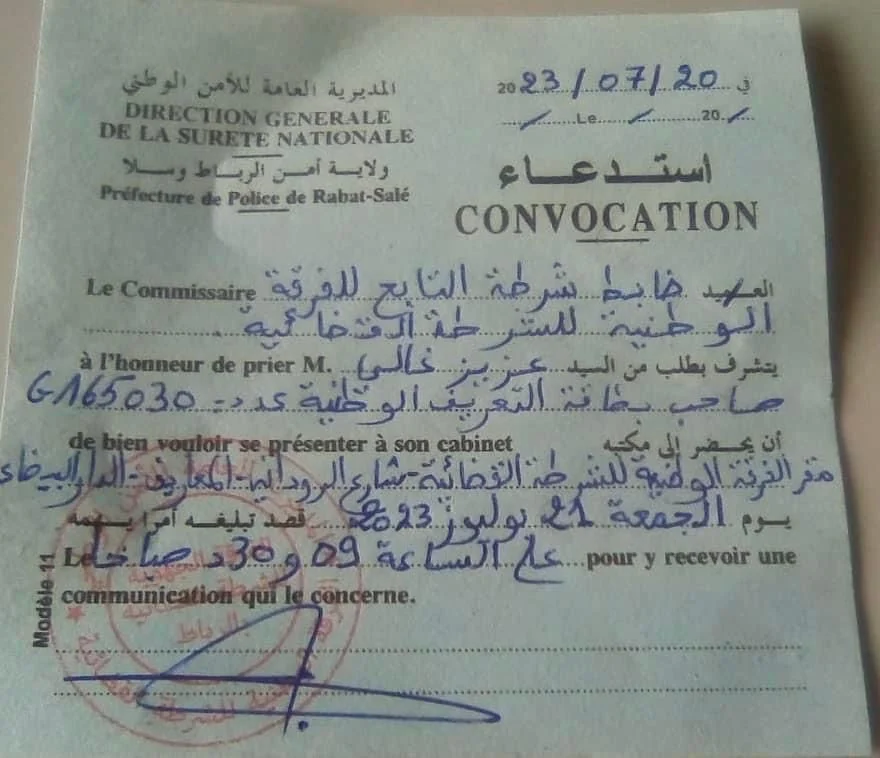 المديرية العامة للأمن الوطني
DIRECTION GENERALE
DE LA SURETE NATIONALE
ولاية أمن الرباط وسلا
Préfecture de Police de Rabat-Salé
في 2023/07/20
Le 20
استدعاء
CONVOCATION
Le Commissaire ضابط شرطة التابع للفرقة العميد
الوطنية للشرطة القضائية
à l'honneur de prier M. عزيز غالي يتشرف بطلب من السيد
صاحب بطاقة التعريف الوطنية عدد - G165030
de bien vouloir se présenter à son cabinet أن يحضر إلى مكتبه
مقر الفرقة الوطنية للشرطة القضائية - شارع الروداني - المعاريف - الدار البيضاء
يوم الجمعة 21 يوليوز 2023 قصد تبليغه أمرا يهمه
Le على الساعة 09 و30د صباحا pour y recevoir une
communication qui le concerne.
Modèle 11
بالرباط